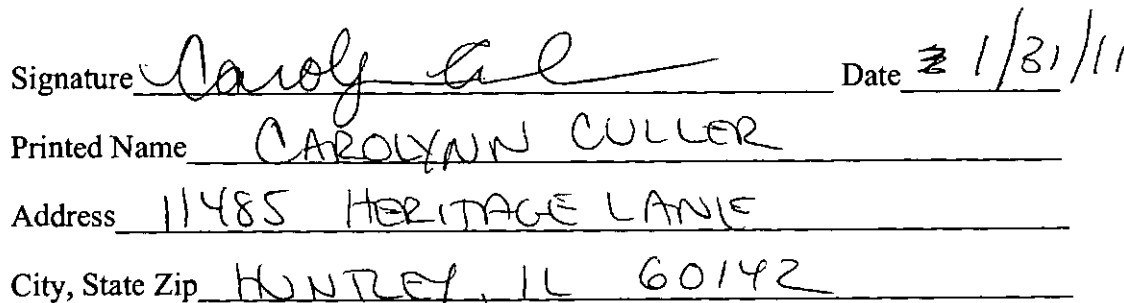 Signature Date 1/31/11
Printed Name CAROLYNN CULLER
Address 11485 HERITAGE LANE
City, State Zip HUNTLEY, IL 60142